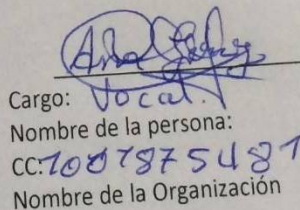 Cargo: Vocal.
Nombre de la persona:
CC:1001875481
Nombre de la Organización